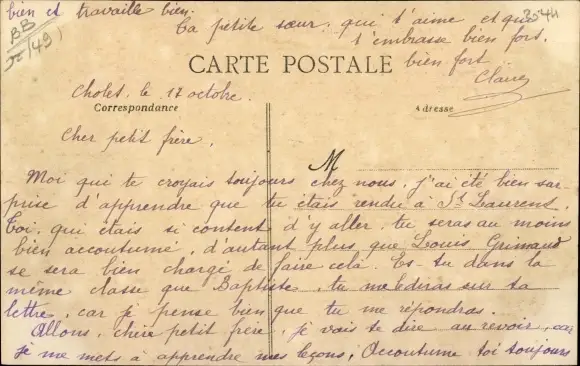 bien et travaille bien.
Ta petite sœur qui t'aime et que
t'embrasse bien fort,
bien fort
Claire
BB
(49)
CARTE POSTALE
Cholet, le 17 octobre.
Correspondance
Adresse
Cher petit frère,
M
Moi qui te croyais toujours chez nous, j'ai été bien sur-
prise d'apprendre que tu étais rendu à St Laurent.
Toi, qui étais si content d'y aller, tu seras au moins
bien accoutumé, d'autant plus que Louis Grimaud
se sera bien chargé de faire celà. Es-tu dans la
même classe que Baptiste, tu me le diras sur ta
lettre, car je pense bien que tu me répondras.
Allons, cher petit frère, je vais te dire au revoir, car
je me mets à apprendre mes leçons; Accoutume toi toujours